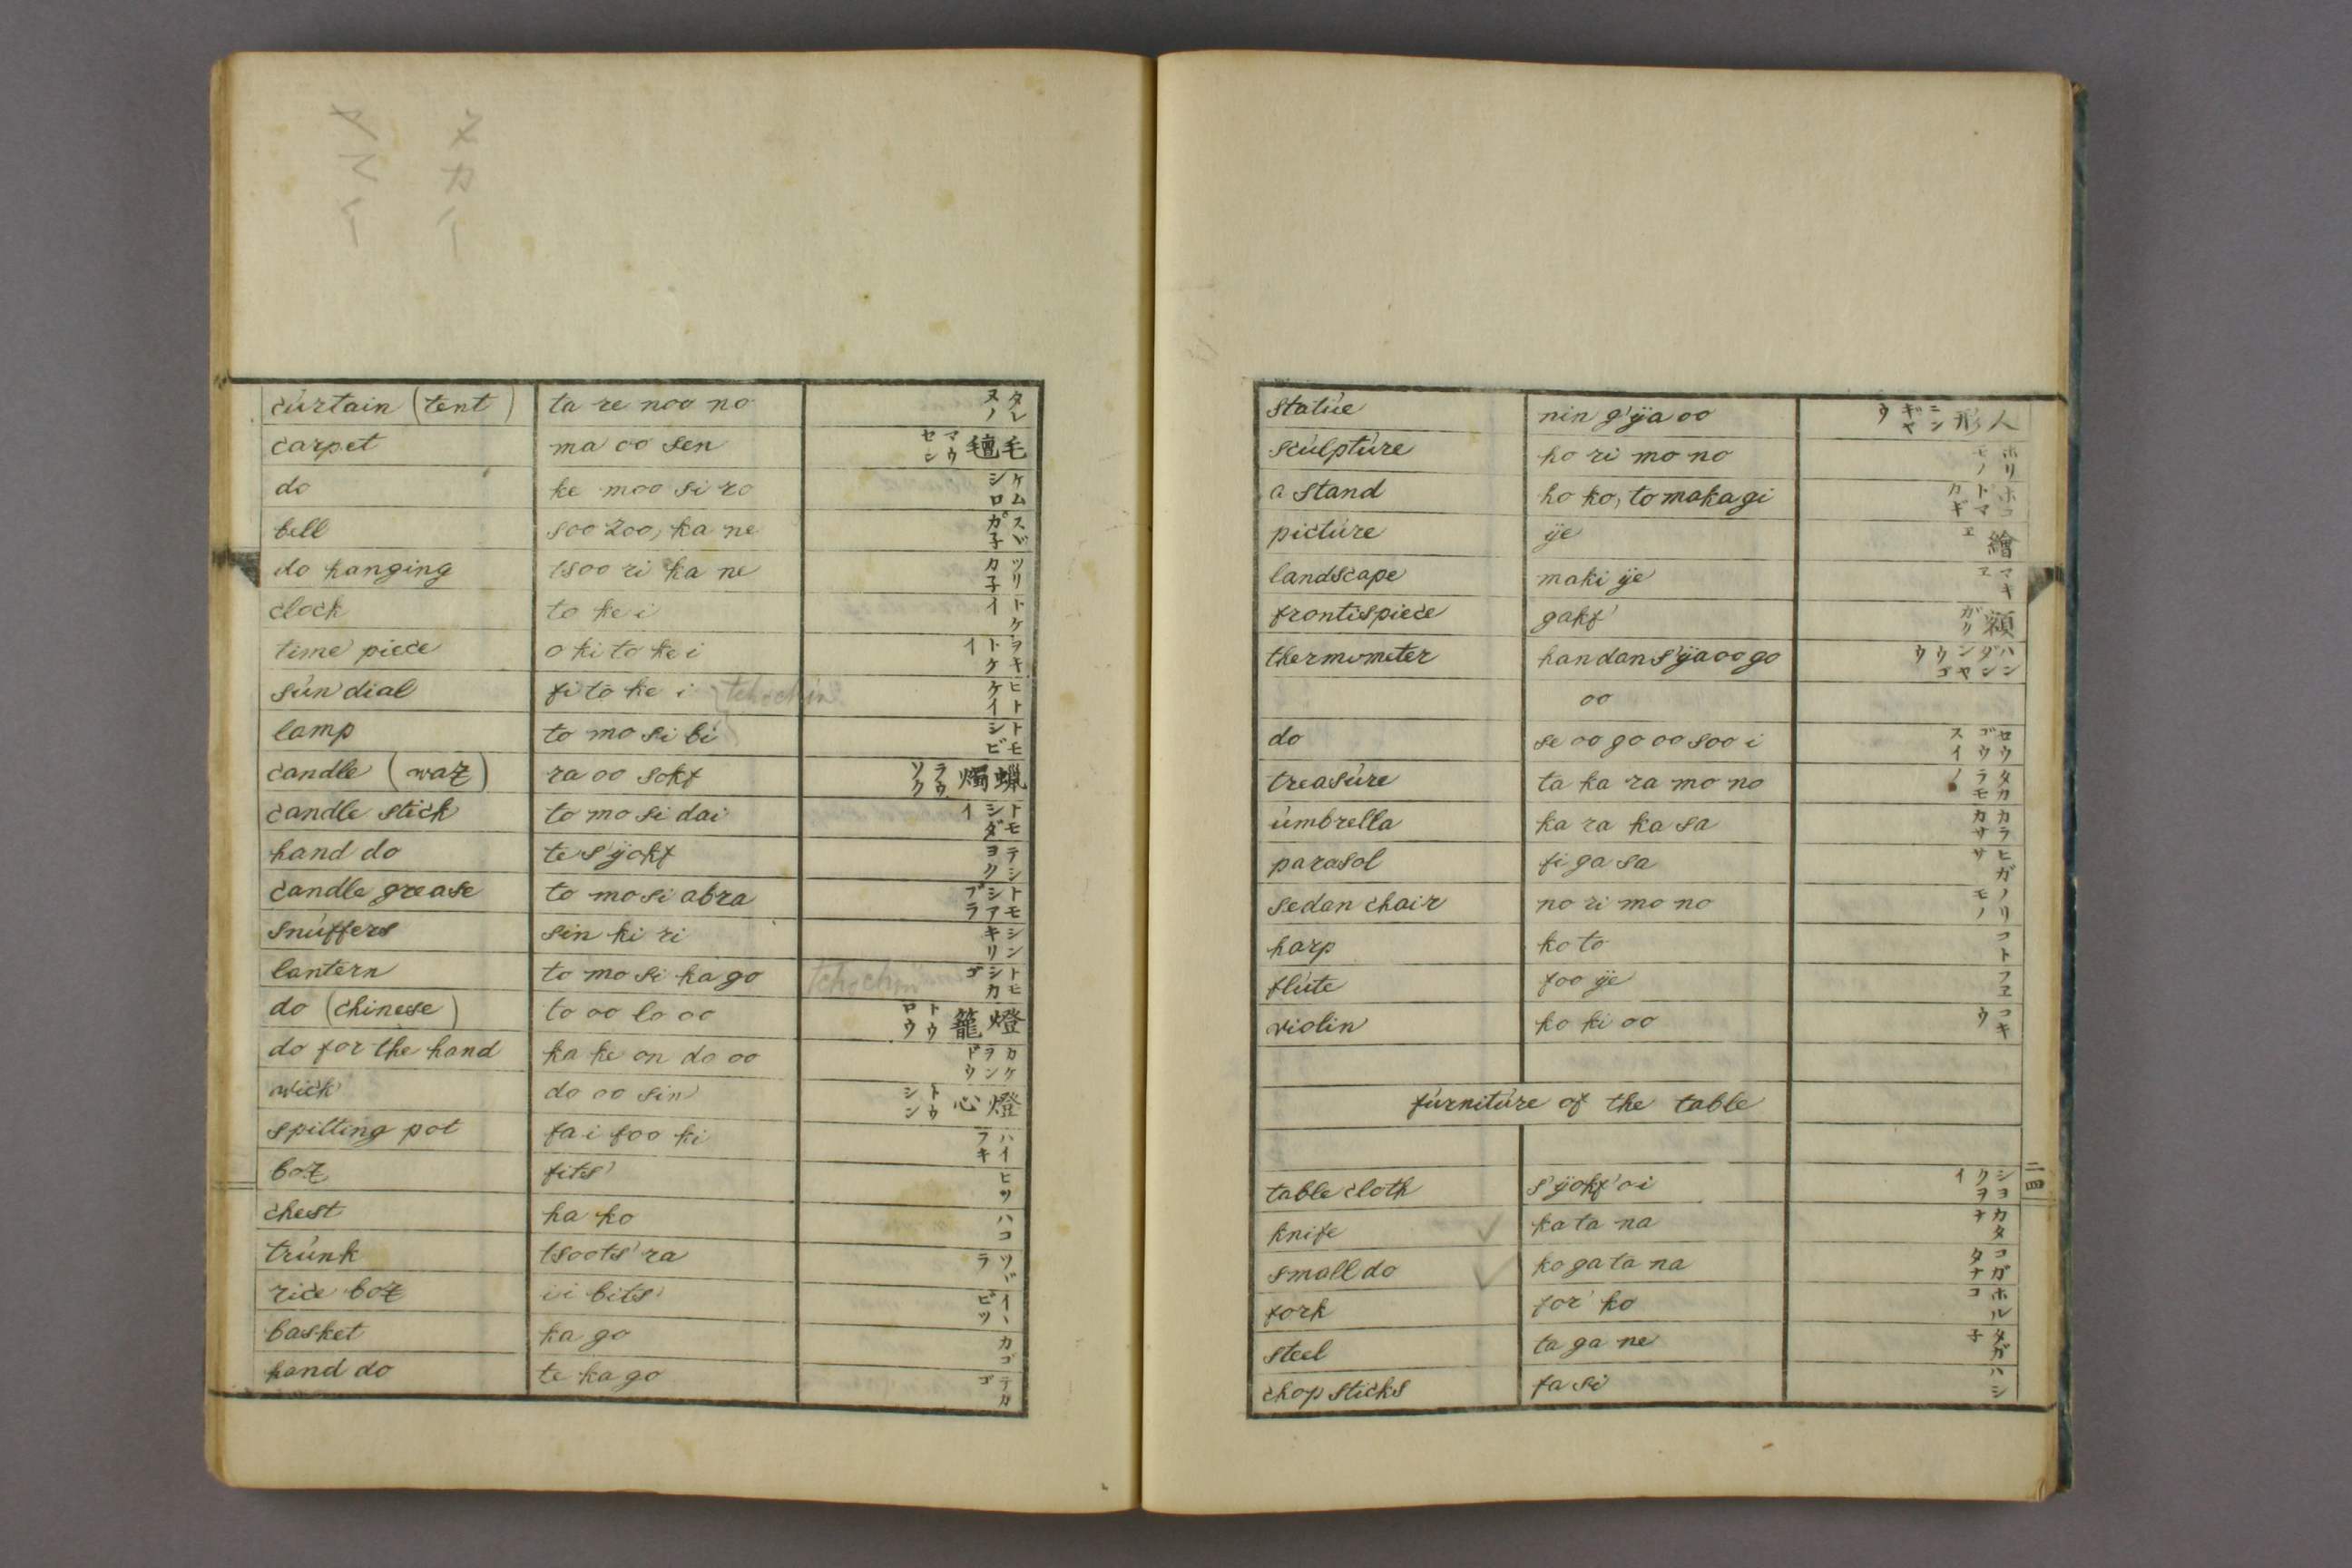 curtain (tent) ta re noo no タレヌノ
carpet ma oo sen 毛氈 マウセン
do ke moo si ro ケムシロ
bell soo zoo, ka ne スヾガ子
do hanging tsoo ri ka ne ツリカ子
clock to ke i トケイ
time piece o ki to ke i ヲキトケイ
sún dial fi to ke i tchochin ヒトケイ
lamp to mo si bi トモシビ
candle (waz) ra oo sokf 蠟燭 ラウソク
candle stick to mo si dai トモシダイ
hand do te s'ÿokf テシヨク
candle grease to mo si abra トモシアブラ
snúffers sin ki ri シンキリ
lantern to mo si ka go tchochin トモシカゴ
do (chinese) to oo lo oo 燈籠 トウロウ
do for the hand ka ke on do oo カケヲンドウ
wick do oo sin 燈心 トウシン
spitting pot fa i foo ki ハイフキ
boz fits' ヒツ
chest ha ko ハコ
trúnk tsoots'ra ツヾラ
rice boz ii bits' イヽビツ
basket ka go カゴ
hand do te ka go テカゴ
statúe nin g'ÿa oo 人形 ニンギヤウ
scúlptúre ho ri mo no ホリモノ
a stand ho ko, to makagi ホコトマカギ
pictúre ÿe 繪 ヱ
landscape maki ÿe マキヱ
frontispiece gakf' 額 ガク
thermometer handan s'ÿa oo go ハンダンシヤウゴウ
oo
do se oo go oo soo i セウゴウスイ
treasúre ta ka ra mo no タカラモノ
úmbrella ka ra ka sa カラカサ
parasol fi ga sa ヒガサ
sedan chair no ri mo no ノリモノ
harp ko to コト
flúte foo ÿe フヱ
violin ko ki oo コキウ
fúrnitúre of the table
table cloth s'ÿokf'oi シヨクヲイ
二四
knife ka ta na カタナ
small do ko ga ta na コガタナ
fork for' ko ホルコ
steel ta ga ne タガ子
chop sticks fa si ハシ